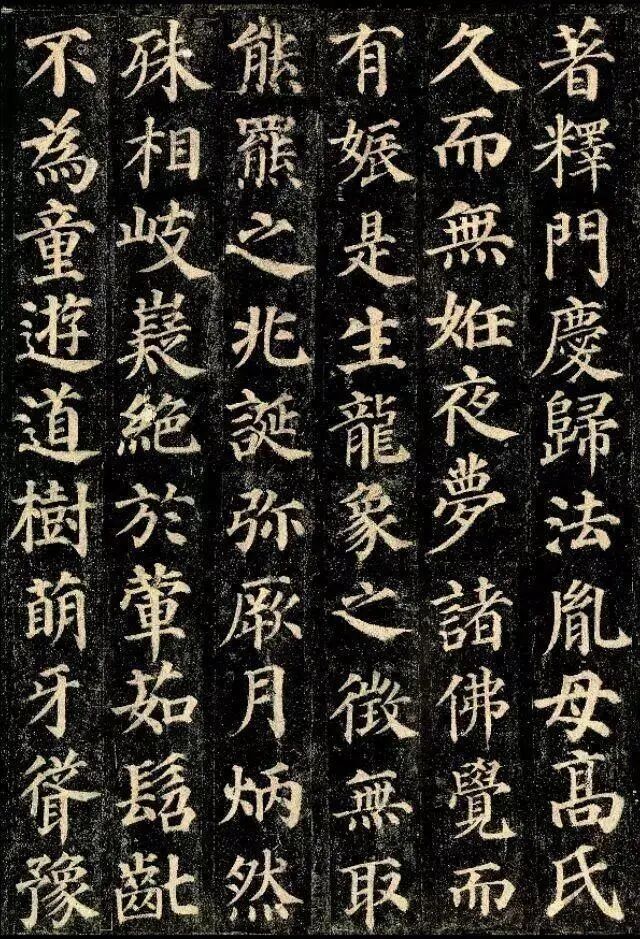 著釋門慶歸法胤母髙氏
久而無姙夜夢諸佛覺而
有娠是生龍象之徵無取
熊羆之兆誕弥厥月炳然
殊相岐嶷絕於葷茹髫齔
不為童遊道樹萌牙聳豫